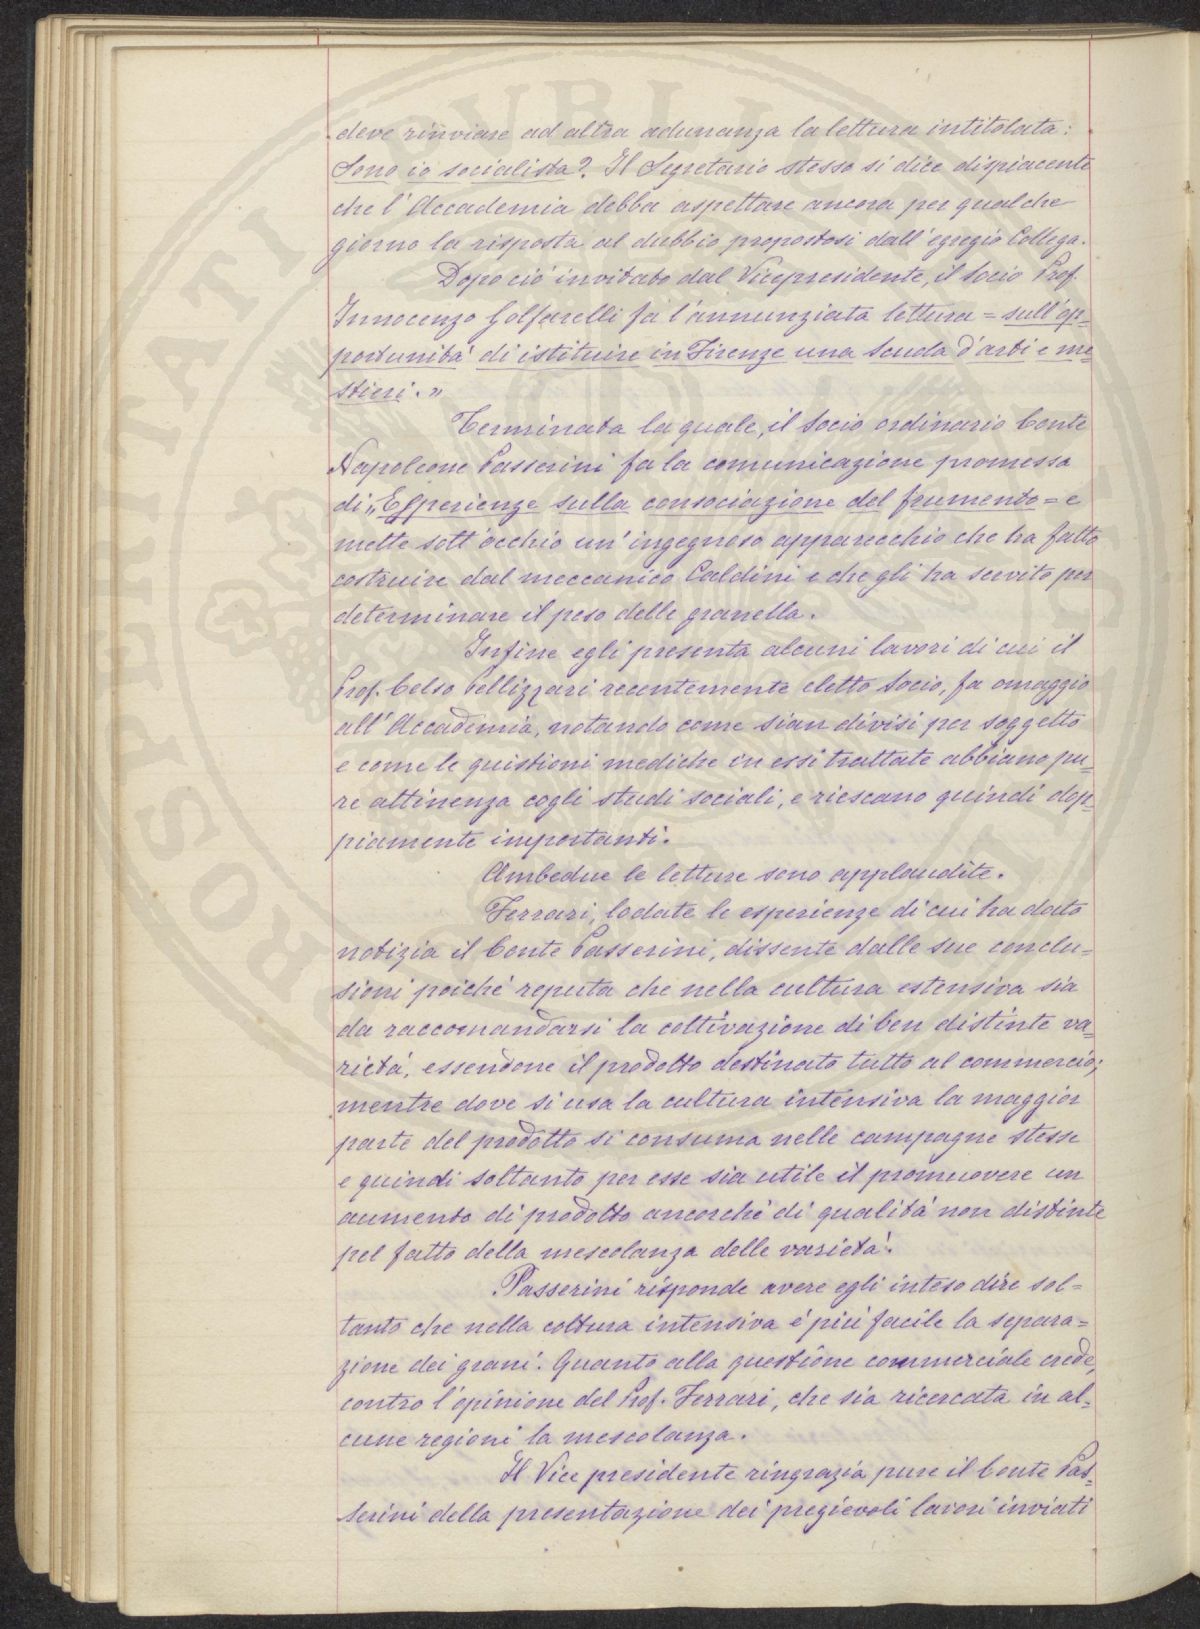 deve rinviare ad altra adunanza la lettura intitolata:
Sono io socialista?. Il Segretario stesso si dice dispiacente
che l'Accademia debba aspettare ancora per qualche
giorno la risposta al dubbio propostosi dall'egregio Collega.
Dopo ciò invitato dal Vicepresidente, il Socio Prof.
Innocenzo Golfarelli fa l'annunziata lettura = sull'op=
portunità di istituire in Firenze una Scuola d'arti e me=
stieri."
Terminata la quale, il Socio ordinario Conte
Napoleone Passerini fa la comunicazione promessa
di „Esperienze sulla consociazione del frumento = e
mette sott'occhio un'ingegnoso apparecchio che ha fatto
costruire dal meccanico Caldini e che gli ha servito per
determinare il peso delle granella.
Infine egli presenta alcuni lavori di cui il
Prof. Celso Pellizzari recentemente eletto Socio, fa omaggio
all'Accademia, notando come sian divisi per soggetto
e come le quistioni mediche in essi trattate abbiano pu=
re attinenza cogli studi sociali, e riescano quindi dop=
piamente importanti.
Ambedue le letture sono applaudite.
Ferrari, lodate le esperienze di cui ha dato
notizia il Conte Passerini, dissente dalle sue conclu=
sioni poiché reputa che nella cultura estensiva sia
da raccomandarsi la coltivazione di ben distinte va=
rietà, essendone il prodotto destinato tutto al commercio;
mentre dove si usa la cultura intensiva la maggior
parte del prodotto si consuma nelle campagne stesse
e quindi soltanto per esse sia utile il promuovere un
aumento di prodotto ancorché di qualità non distinte
pel fatto della mescolanza delle varietà.
Passerini risponde avere egli inteso dire sol=
tanto che nella coltura intensiva é più facile la separa=
zione dei grani. Quanto alla questione commerciale crede,
contro l'opinione del Prof. Ferrari, che sia ricercata in al=
cune regioni la mescolanza.
Il Vice presidente ringrazia pure il Conte Pas=
serini della presentazione dei pregievoli lavori inviati